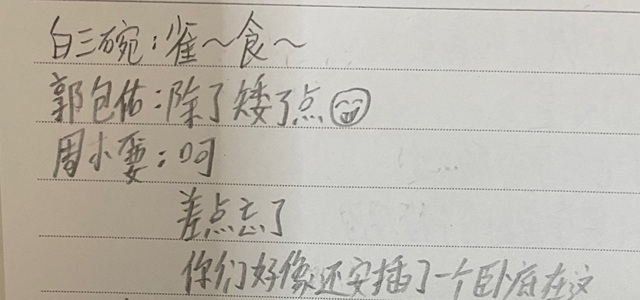 白三碗：雀～食～
郭包佑：除了矮了点
周小要：呵
差点忘了
你们好像还安插了一个卧底在这